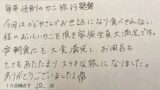 毎年恒例のカニ旅行
今回はのどやさんでお世話になり食べきれない
程のおいしいカニ頂き家族全員大満足です。
伊朝食にも大変満足し、お風呂も
とてもあたたまりステキな旅になりました。
ありがとうございました
10